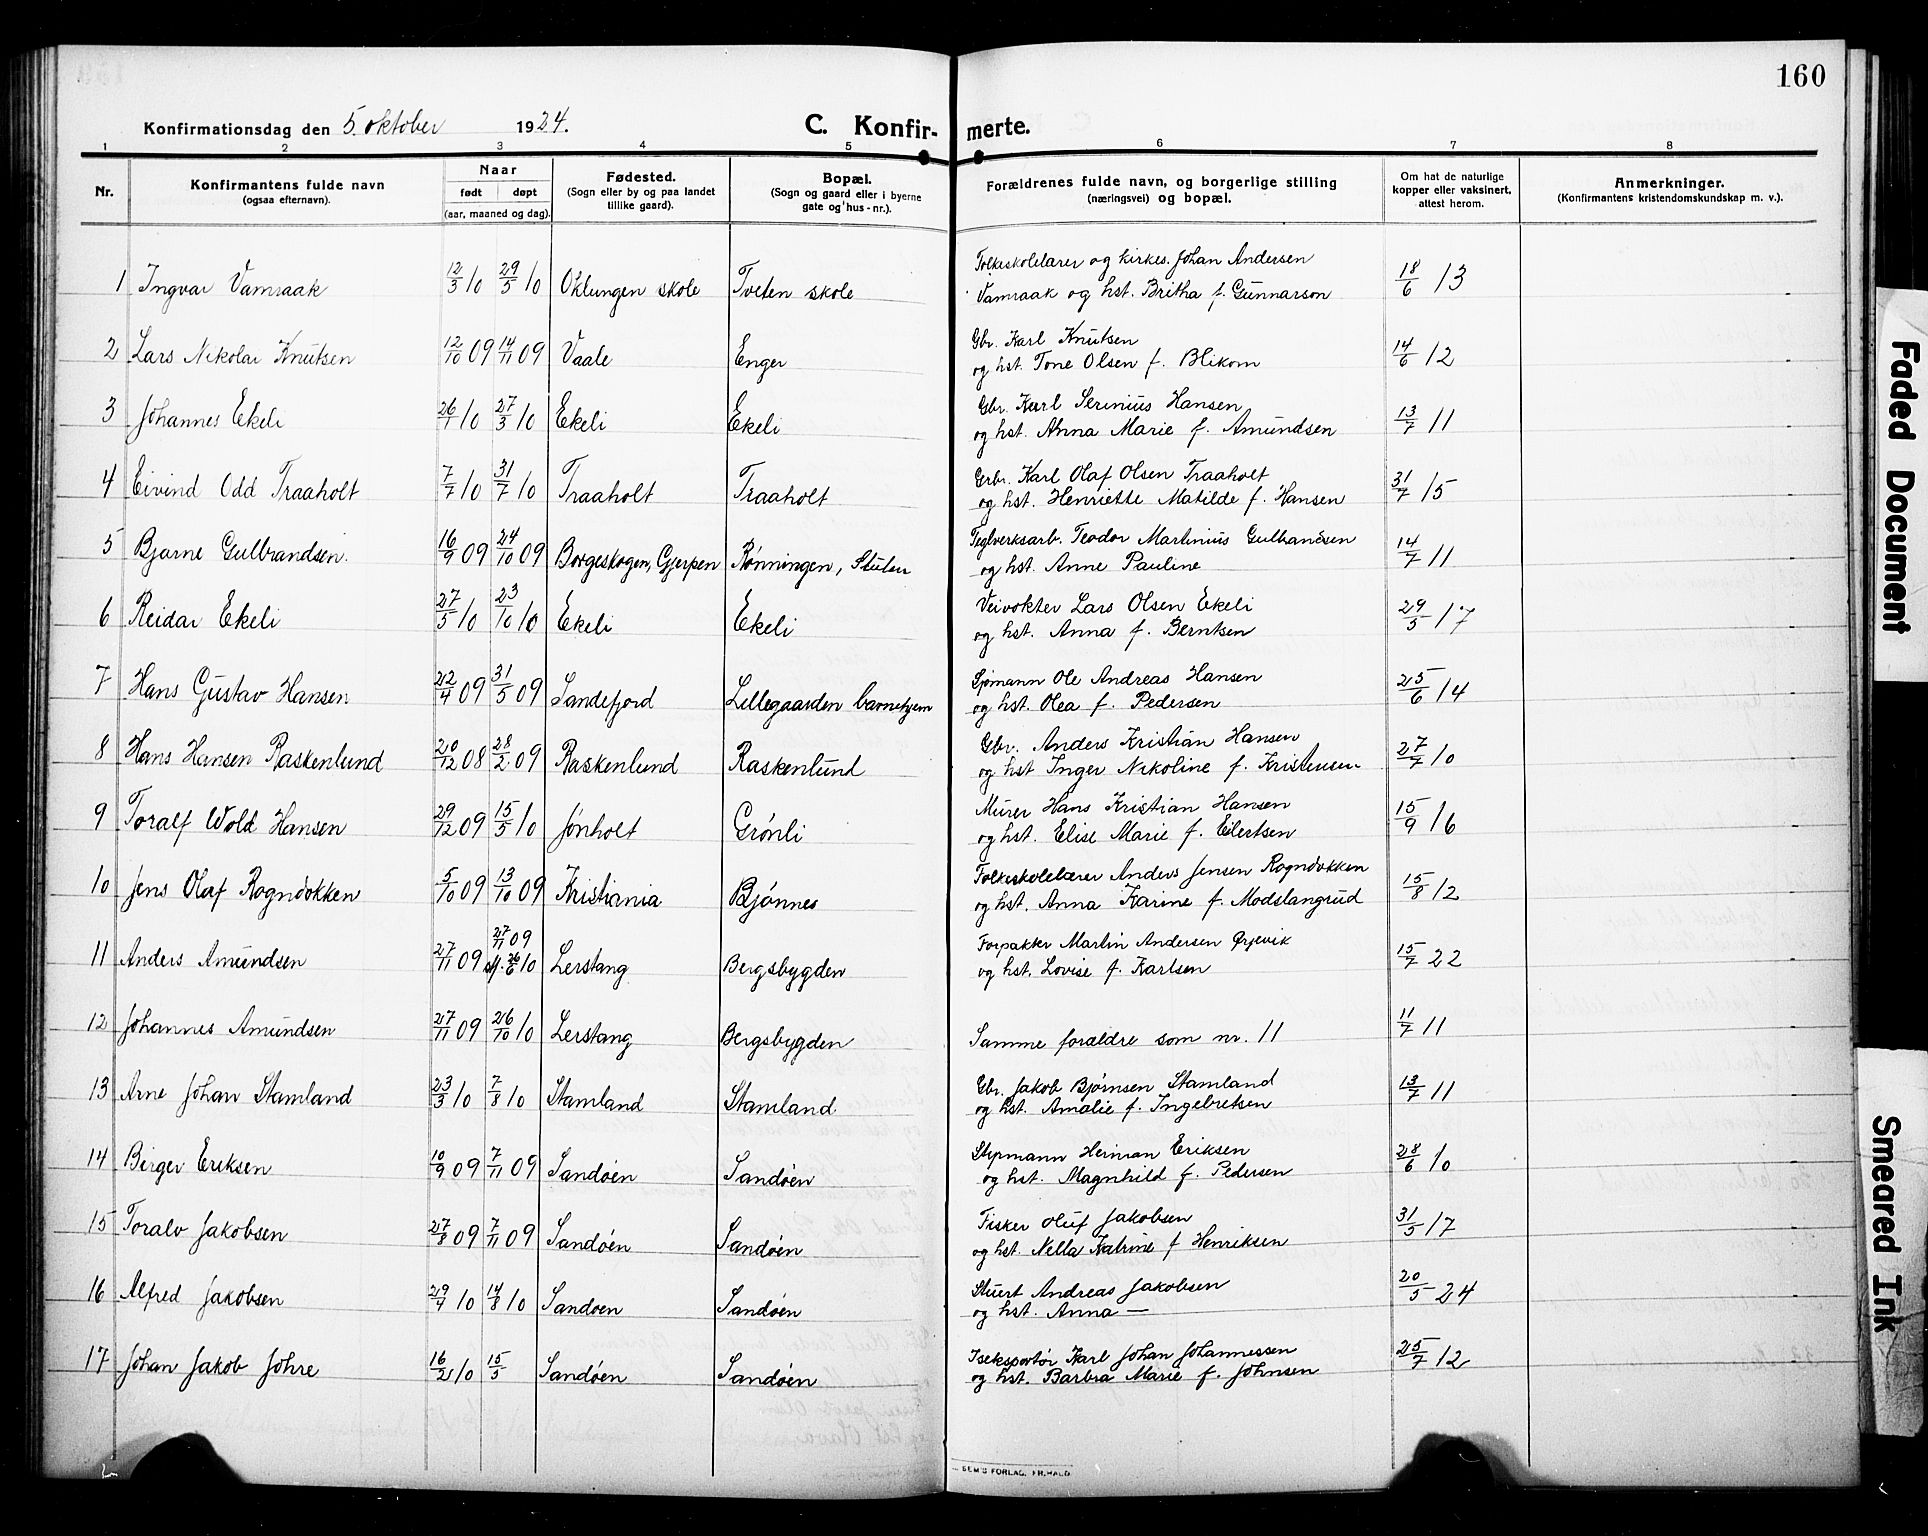 160
Konfirmationsdag den 5. oktober 1924.
C. Konfir- merte.
1 2 3 4 5 6 7 8
Nr.
Konfirmantens fulde navn
(ogsaa efternavn).
Naar
født døpt
(aar, maaned og dag).
Fødested.
(Sogn eller by og paa landet
tillike gaard).
Bopæl.
(Sogn og gaard eller i byerne
gate og hus-nr.).
Forældrenes fulde navn, og borgerlige stilling
(næringsvei) og bopæl.
Om hat de naturlige
kopper eller vaksinert,
attest herom.
Anmerkninger.
(Konfirmantens kristendomskundskap m. v.).
1 Ingvar Vamraak 12/3 10 29/5 10 Oklungen skole Tveten skole Folkeskolelærer og kirkes. Johan Andersen
Vamraak og hst. Britha f. Gunnarson 18/6 13 -
2 Lars Nikolai Knutsen 12/10 09 14/11 09 Vaale Enger Gbr. Karl Knutsen
og hst. Tone Olsen f. Blikom 14/6 12 -
3 Johannes Ekeli 26/1 10 27/3 10 Ekeli Ekeli Gbr. Karl Serinius Hansen
og hst. Anna Marie f. Amundsen 13/7 11 -
4 Eivind Odd Traaholt 7/7 10 31/7 10 Traaholt Traaholt Grbr. Karl Olaf Olsen Traaholt
og hst. Henriette Matilde f. Hansen 31/7 15 -
5 Bjarne Gulbrandsen. 16/9 09 24/10 09 Borgeskogen, Gjerpen Rønningen, Stulen Teglverksarb. Teodor Martinius Gulbandsen
og hst. Anne Pauline 14/7 11 -
6 Reidar Ekeli 27/5 10 23/10 10 Ekeli Ekeli Veivokter Lars Olsen Ekeli
og hst. Anna f. Berntsen 29/5 17 -
7 Hans Gustav Hansen 22/4 09 31/5 09 Sandefjord Lillegaarden barnehjem Sjømann Ole Andreas Hansen
og hst. Olea f. Pedersen 25/6 14 -
8 Hans Hansen Raskenlund 20/12 08 28/2 09 Raskenlund Raskenlund Gbr. Anders Kristian Hansen
og hst Inger Nikoline f. Kristensen 27/7 10 -
9 Toralf Wold Hansen 29/12 09 15/5 10 Jønholt Grønli Murer Hans Kristian Hansen
og hst. Elise Marie f. Eilertsen 15/9 16 -
10 Jens Olaf Rogndokken 5/10 09 13/10 09 Kristiania Bjønnes Folkeskolelærer Anders Jensen Rogndokken
og hst. Anna Karine f. Modslangrud 15/8 12 -
11 Anders Amundsen 27/11 09 27/11 09
st. 26/6 10 Lerstang Bergsbygden Forpakter Martin Andersen Ørjevik
og hst. Lovise f. Karlsen 15/7 22 -
12 Johannes Amundsen 27/11 09 26/10 10 Lerstang Bergsbygden Samme forældre som nr. 11 11/7 11 -
13 Arne Johan Stamland 23/3 10 7/8 10 Stamland Stamland Gbr. Jakob Bjørnsen Stamland
og hst. Amalie f. Ingebretsen 13/7 11 -
14 Birger Eriksen 10/9 09 7/11 09 Sandøen Sandøen Styrmann Herman Eriksen
og hst. Magnhild f. Pedersen 28/6 10 -
15 Toralv Jakobsen 27/8 09 7/11 09 Sandøen Sandøen Fisker Oluf Jakobsen
og hst. Nella Katrine f Henriksen 31/5 17 -
16 Alfred Jakobsen 29/4 10 14/8 10 Sandøen Sandøen Stuert Andreas Jakobsen
og hst. Anna — 20/5 24 -
17 Johan Jakob Johre 16/2 10 15/5 Sandøen Sandøen Iseksportør Karl Johan Johannessen
og hst. Barbra Marie f. Johnsen 25/7 12 -
SEM'S FORLAG, FR.HALD
Faded Document
Smeared Ink